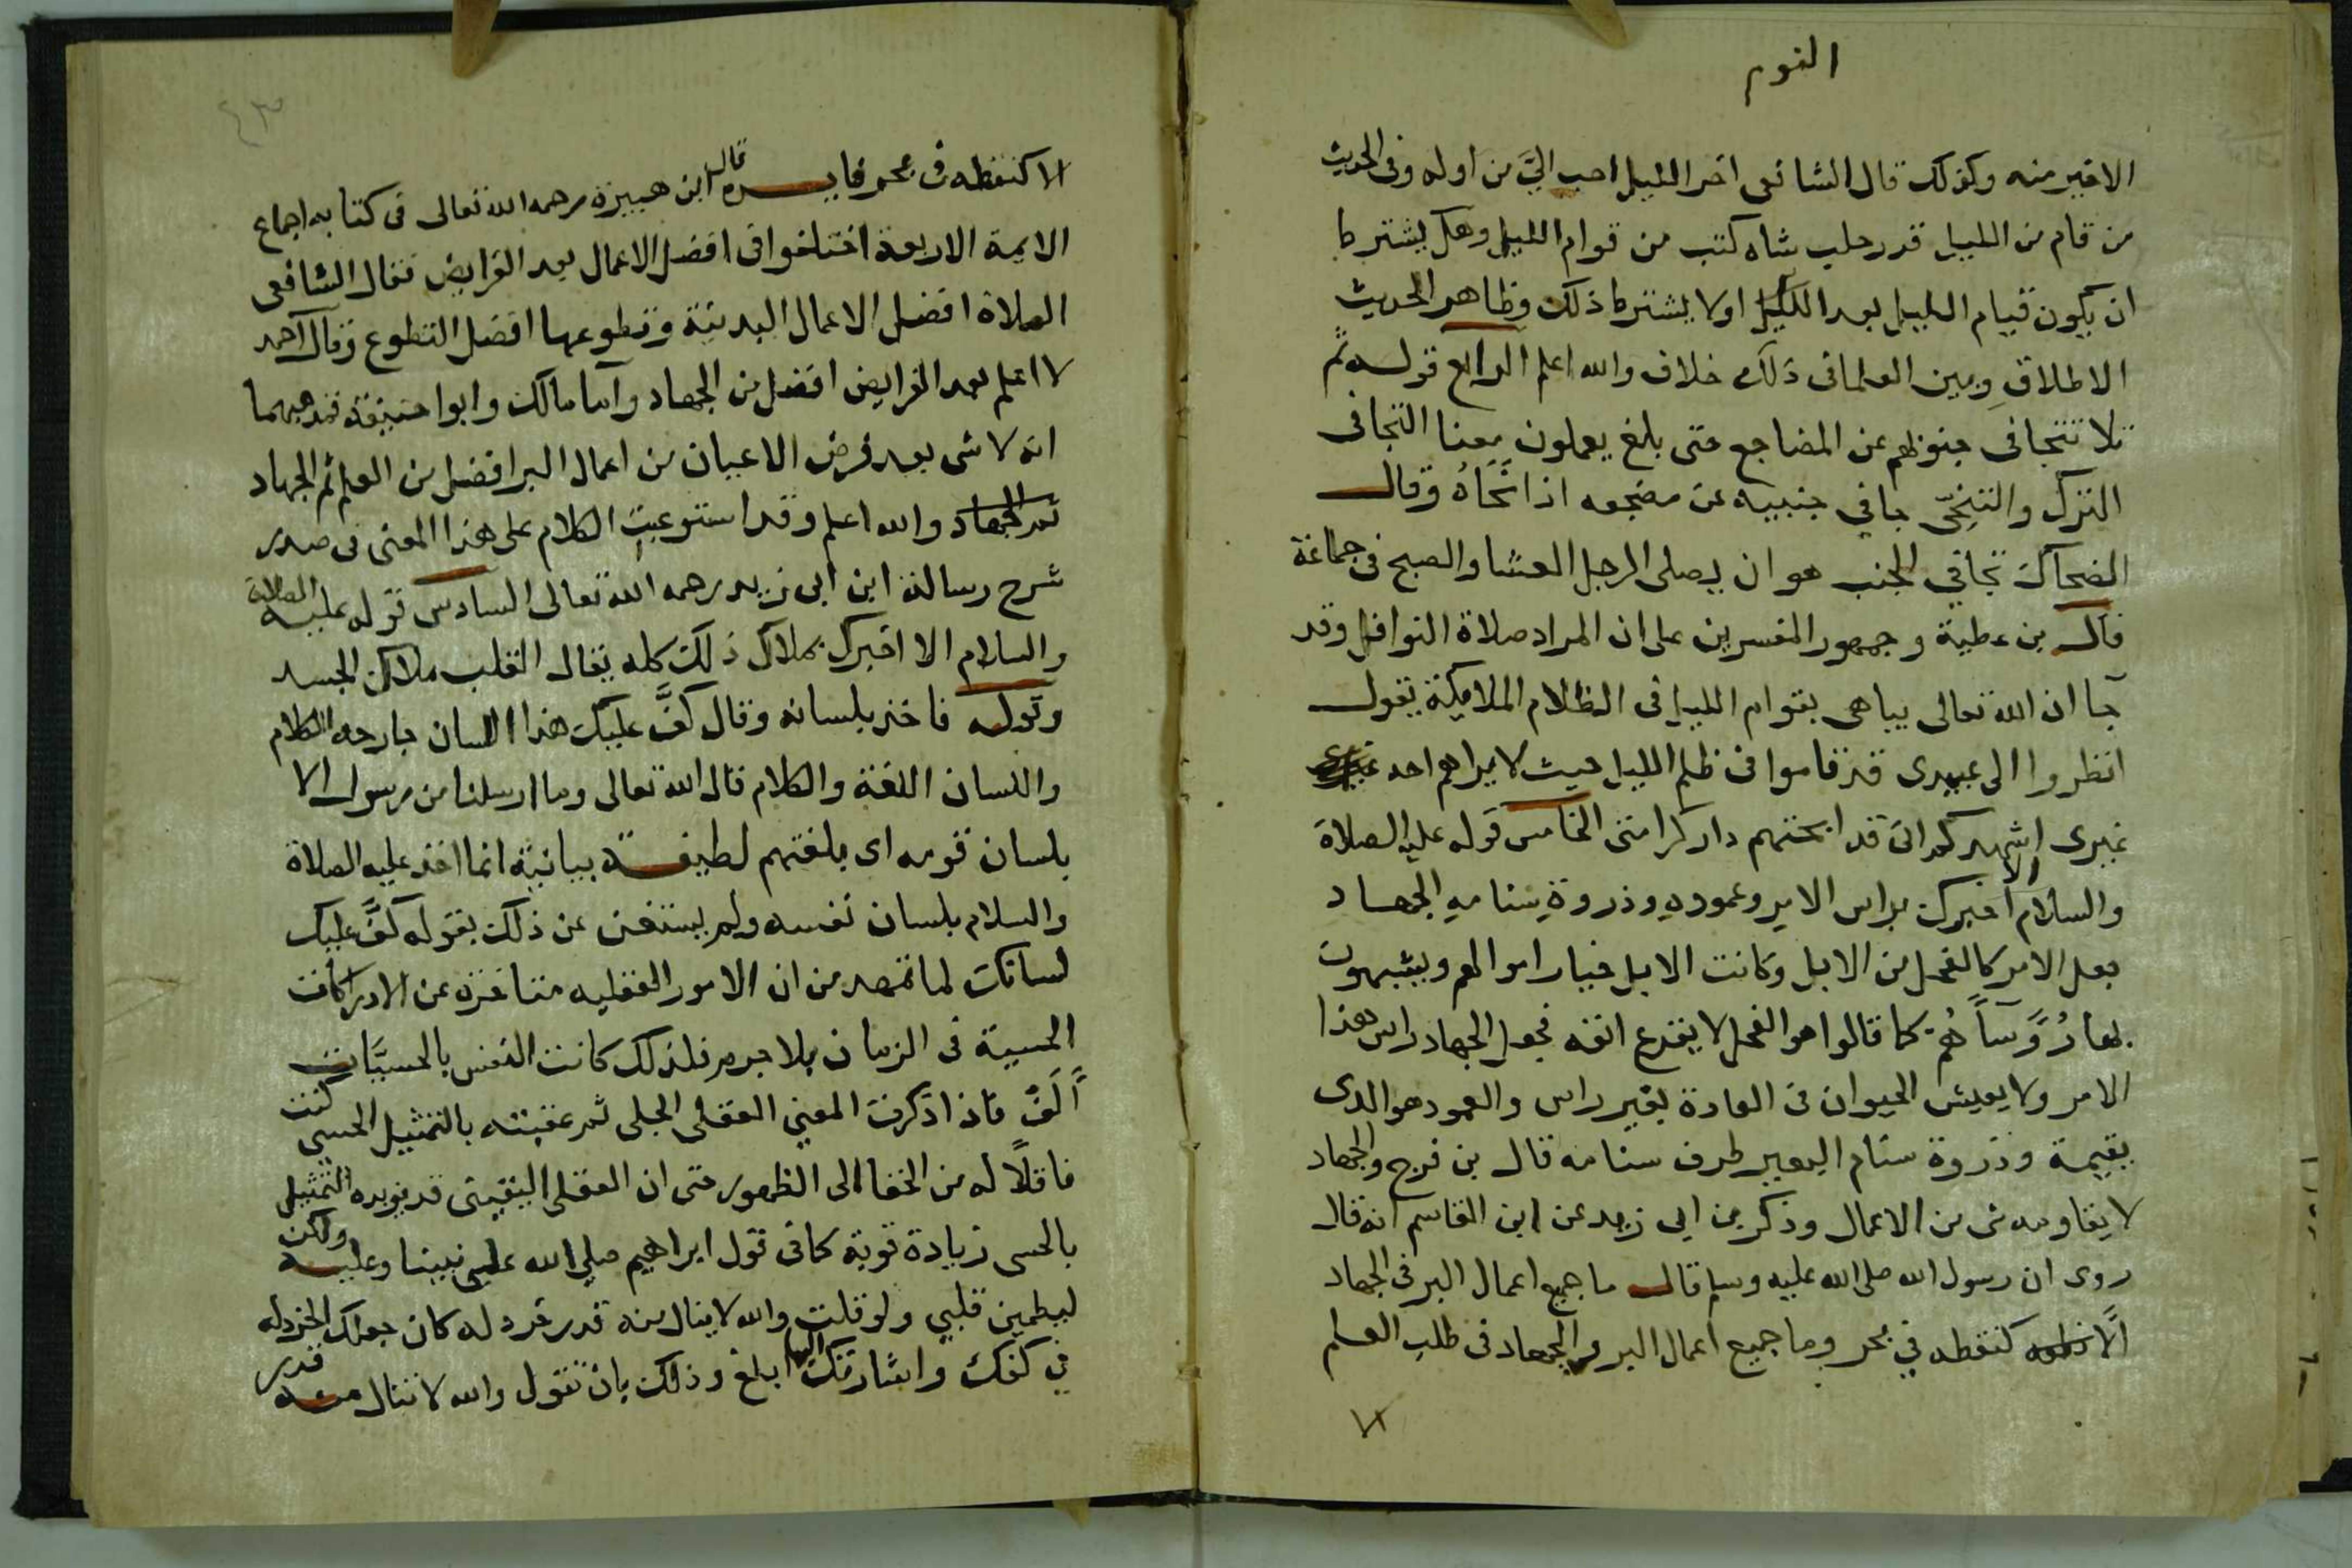 النوم
الاخير منه وكذلك قال الشافعى اخر الليل احب اليَّ من اوله وفى الحديث
من قام من الليل قدر حلب شاه كتب من قوام الليل وهل يشترط
ان يكون قيام الليل بعد الليل اولا يشترط ذلك وظاهر الحديث
الاطلاق وبين العلمافى ذلك خلاف والله اعلم الرابع قوله ثم
تلا تتجافى جنوبهم عن المضاجع حتى بلغ يعملون معنا التجافى
الترك والتنحّى جافي جنبيه عن مضجعه اذا نَحَّاهُ وقال
الضحاك تجافي الجنب هو ان يصلى الرجل العشا والصبح فى جماعة
قال بن عطية وجمهور المفسرين على ان المراد صلاة النوافل وقد
جا ان الله تعالى يباهى بقوام الليل فى الظلام الملايكة يقول
انظروا الى عبيدى قد قاموا فى ظلم الليل حيث لا يراهم احد
غيرى اشهدكم انى قد ابحتهم دار كرامتى الخامس قوله عليه الصلاة
والسلام الا اخبرك براس الامر وعموده وذروة سنامه الجهاد
جعل الامر كالفحل من الابل وكانت الابل خيار اموالهم ويشبهون
بها رُوَّسآَهُم كما قالوا هو الفحل لا يقدع انفه فجعل الجهاد راس هذا
الامر ولا يعيش الحيوان فى العادة بغير راس والعمود هو الذى
يقيمه وذروة سنام البعير طرف سنامه قال بن فرج والجهاد
لا يقاومه شى من الاعمال وذكر بن ابي زيد عن ابن القاسم انه قال
روى ان رسول الله صلى الله عليه وسلم قال ما جميع اعمال البر فى الجهاد
الَّا كنقطه في بحر وما جميع اعمال البر والجهاد فى طلب العلم
٤٣
الا كنقطه فى بحر فايدة قال ابن هبيرة رحمه الله تعالى فى كتابه اجماع
الايمة الاربعة اختلفوا فى افضل الاعمال بعد الفرايض فقال الشافعى
الصلاة افضل الاعمال البدنية وتطوعها افضل التطوع وقال احمد
لا اعلم بعد الفرايض افضل من الجهاد واما مالك وابوا حنيفة فمذهبهما
انه لا شى بعد فرض الاعيان من اعمال البر افضل من العلم ثم الجهاد
ثم الجهاد والله اعلم وقد استوعبت الكلام على هذا المعنى فى صدر
شرح رسالة ابن ابى زيد رحمه الله تعالى السادس قوله عليه الصلاة
والسلام الا اخبرك بملاك ذلك كله يقال القلب ملاك الجسد
وقوله فاخذ بلسانه وقال كفَّ عليك هذا اللسان جارحه الكلام
واللسان اللغة والكلام قال الله تعالى وما ارسلنا من رسول الا
بلسان قومه اى بلغتهم لطيفة بيانية انما اخذ عليه الصلاة
والسلام بلسان نفسه ولم يستغن عن ذلك بقوله كفَّ عليك
لسانك لما تمهد من ان الامور العقليه متاخره عن الادراكات
الحسية فى الزمان بلا جرم فلذلك كانت النفس بالحسيَّات
آلَفُ فاذا ذكرت المعنى العقلى الجلى ثم عقبته بالتمثيل الحسي كنت
ناقلاً له من الخفا الى الظهور حتى ان العقلى اليقينى قد يويده التمثيل
بالحسى زيادة قوية كما فى قول ابراهيم صلى الله على نبينا وعليه ولكن
ليطمين قلبي ولو قلت والله لا ينال منه قدر خردله كان جعلك الخردله
في كفك واشارتك اليها ابلغ وذلك بان تقول والله لا تنال منه قدر